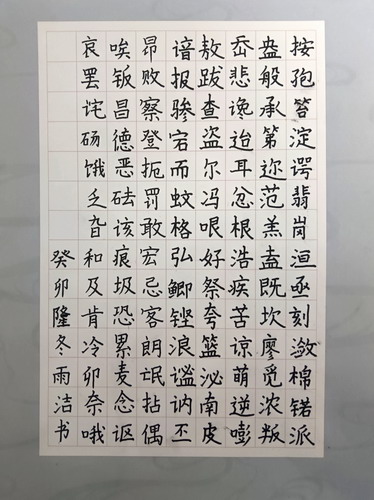 按孢笞淀谔翡岗洹亟刻潋棉锘派
盎般承第迩范羔盍既坎廖觅浓叛
岙悲谗迨耳忿根浩疾苦谅萌逆嘭
敖跋查盗尔冯哏好祭夸篮泌南皮
谙报骖宕而蚊格弘鲫铿浪谧讷丕
昂败察登扼罚敢宏忌客朗氓拈偶
唉钣昌德恶砝该痕圾恐累麦念讴
哀罢诧砀饿乏旮和及肯冷卯奈哦
癸卯隆冬雨洁书